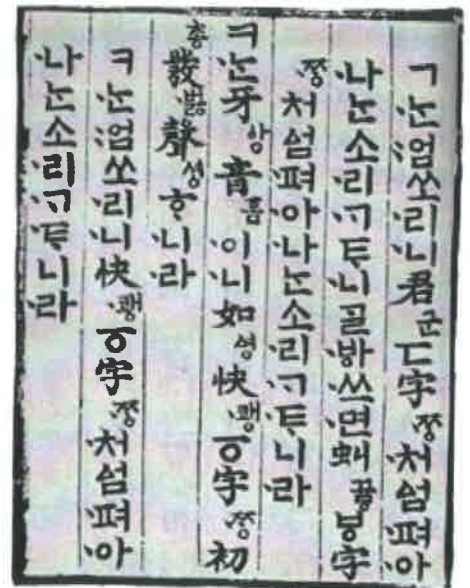 ㄱᄂᆞᆫ엄쏘리니君군ㄷ字ᄍᆞᆼ처ᅀᅥᆷ펴아
나ᄂᆞᆫ소리ᄀᆞᄐᆞ니ᄀᆞᆯᄫᅡ쓰면虯뀨ᇢᄫ字
ᄍᆞᆼ처ᅀᅥᆷ펴아나ᄂᆞᆫ소리ᄀᆞᄐᆞ니라
ㅋᄂᆞᆫ牙ᅌᅡᆼ音ᅙᅳᆷ이니如ᅀᅧᆼ快쾡ㆆ字ᄍᆞᆼ初
총發ᄫᅥᇙ聲셩ᄒᆞ니라
ㅋᄂᆞᆫ엄쏘리니快쾡ㆆ字ᄍᆞᆼ처ᅀᅥᆷ펴아
나ᄂᆞᆫ소리ᄀᆞᄐᆞ니라